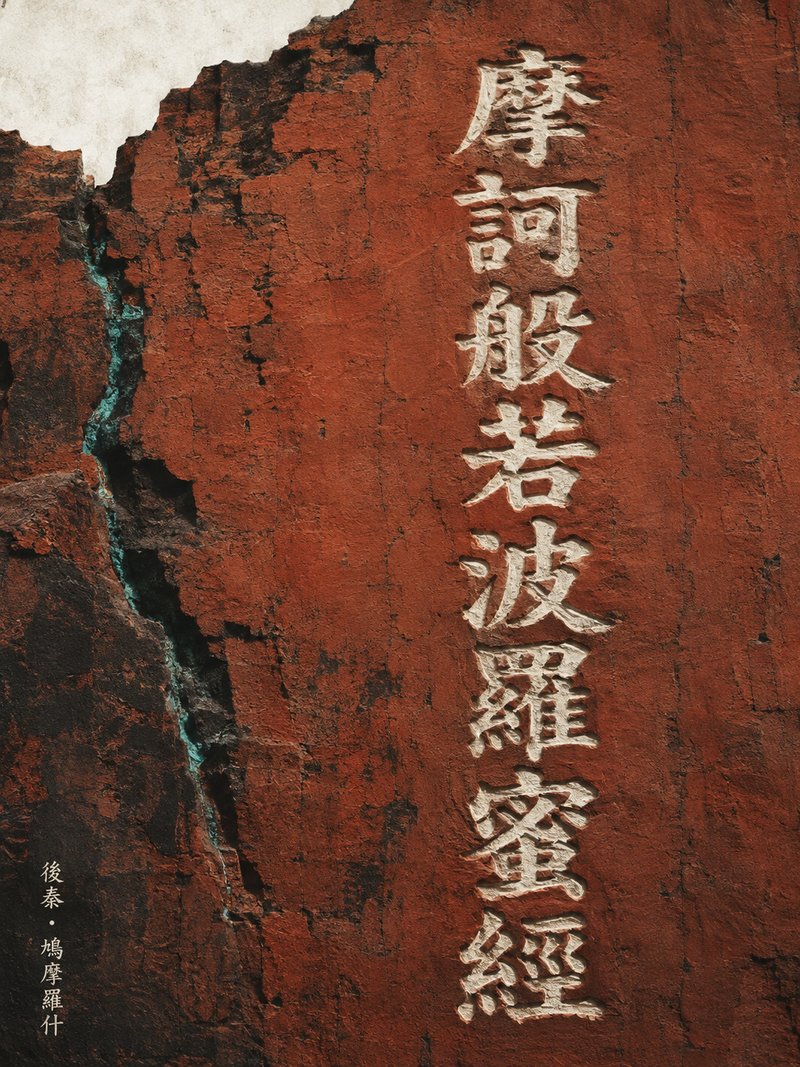 摩訶般若波羅蜜經
後秦・鳩摩羅什